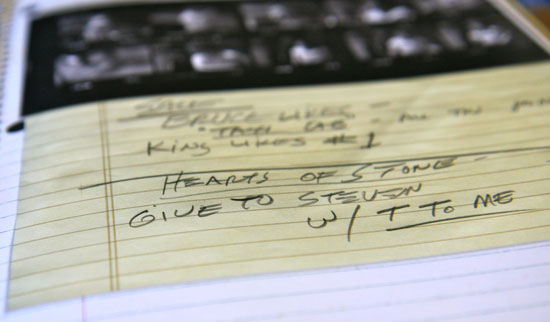 SAVE
BRUCE LIKES -
KING LIKES #1
HEARTS OF STONE -
GIVE TO STEVEN
W/ T TO ME